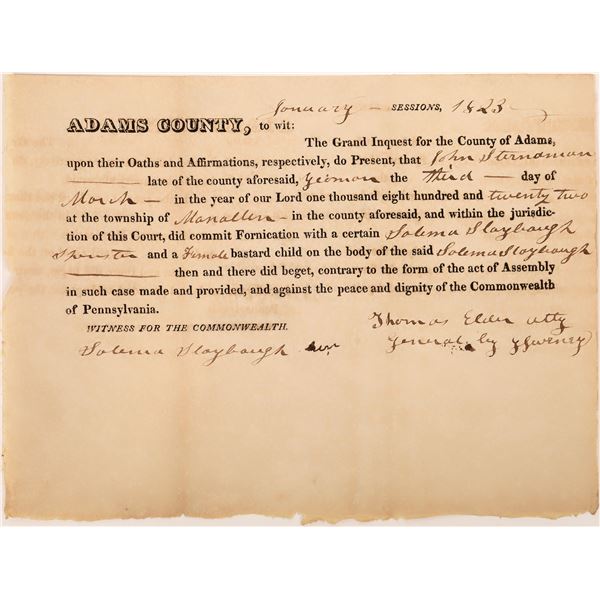 January — SESSIONS, 1823
ADAMS COUNTY, to wit:
The Grand Inquest for the County of Adams,
upon their Oaths and Affirmations, respectively, do Present, that John Sternaman
late of the county aforesaid, Yeoman the Third — day of
March — in the year of our Lord one thousand eight hundred and twenty two
at the township of Manallen — in the county aforesaid, and within the jurisdic-
tion of this Court, did commit Fornication with a certain Solema Slaybaugh
Spinster and a Female bastard child on the body of the said Solema Slaybaugh
then and there did beget, contrary to the form of the act of Assembly
in such case made and provided, and against the peace and dignity of the Commonwealth
of Pennsylvania.
WITNESS FOR THE COMMONWEALTH.
Thomas Elder atty
Solema Slaybaugh
General by